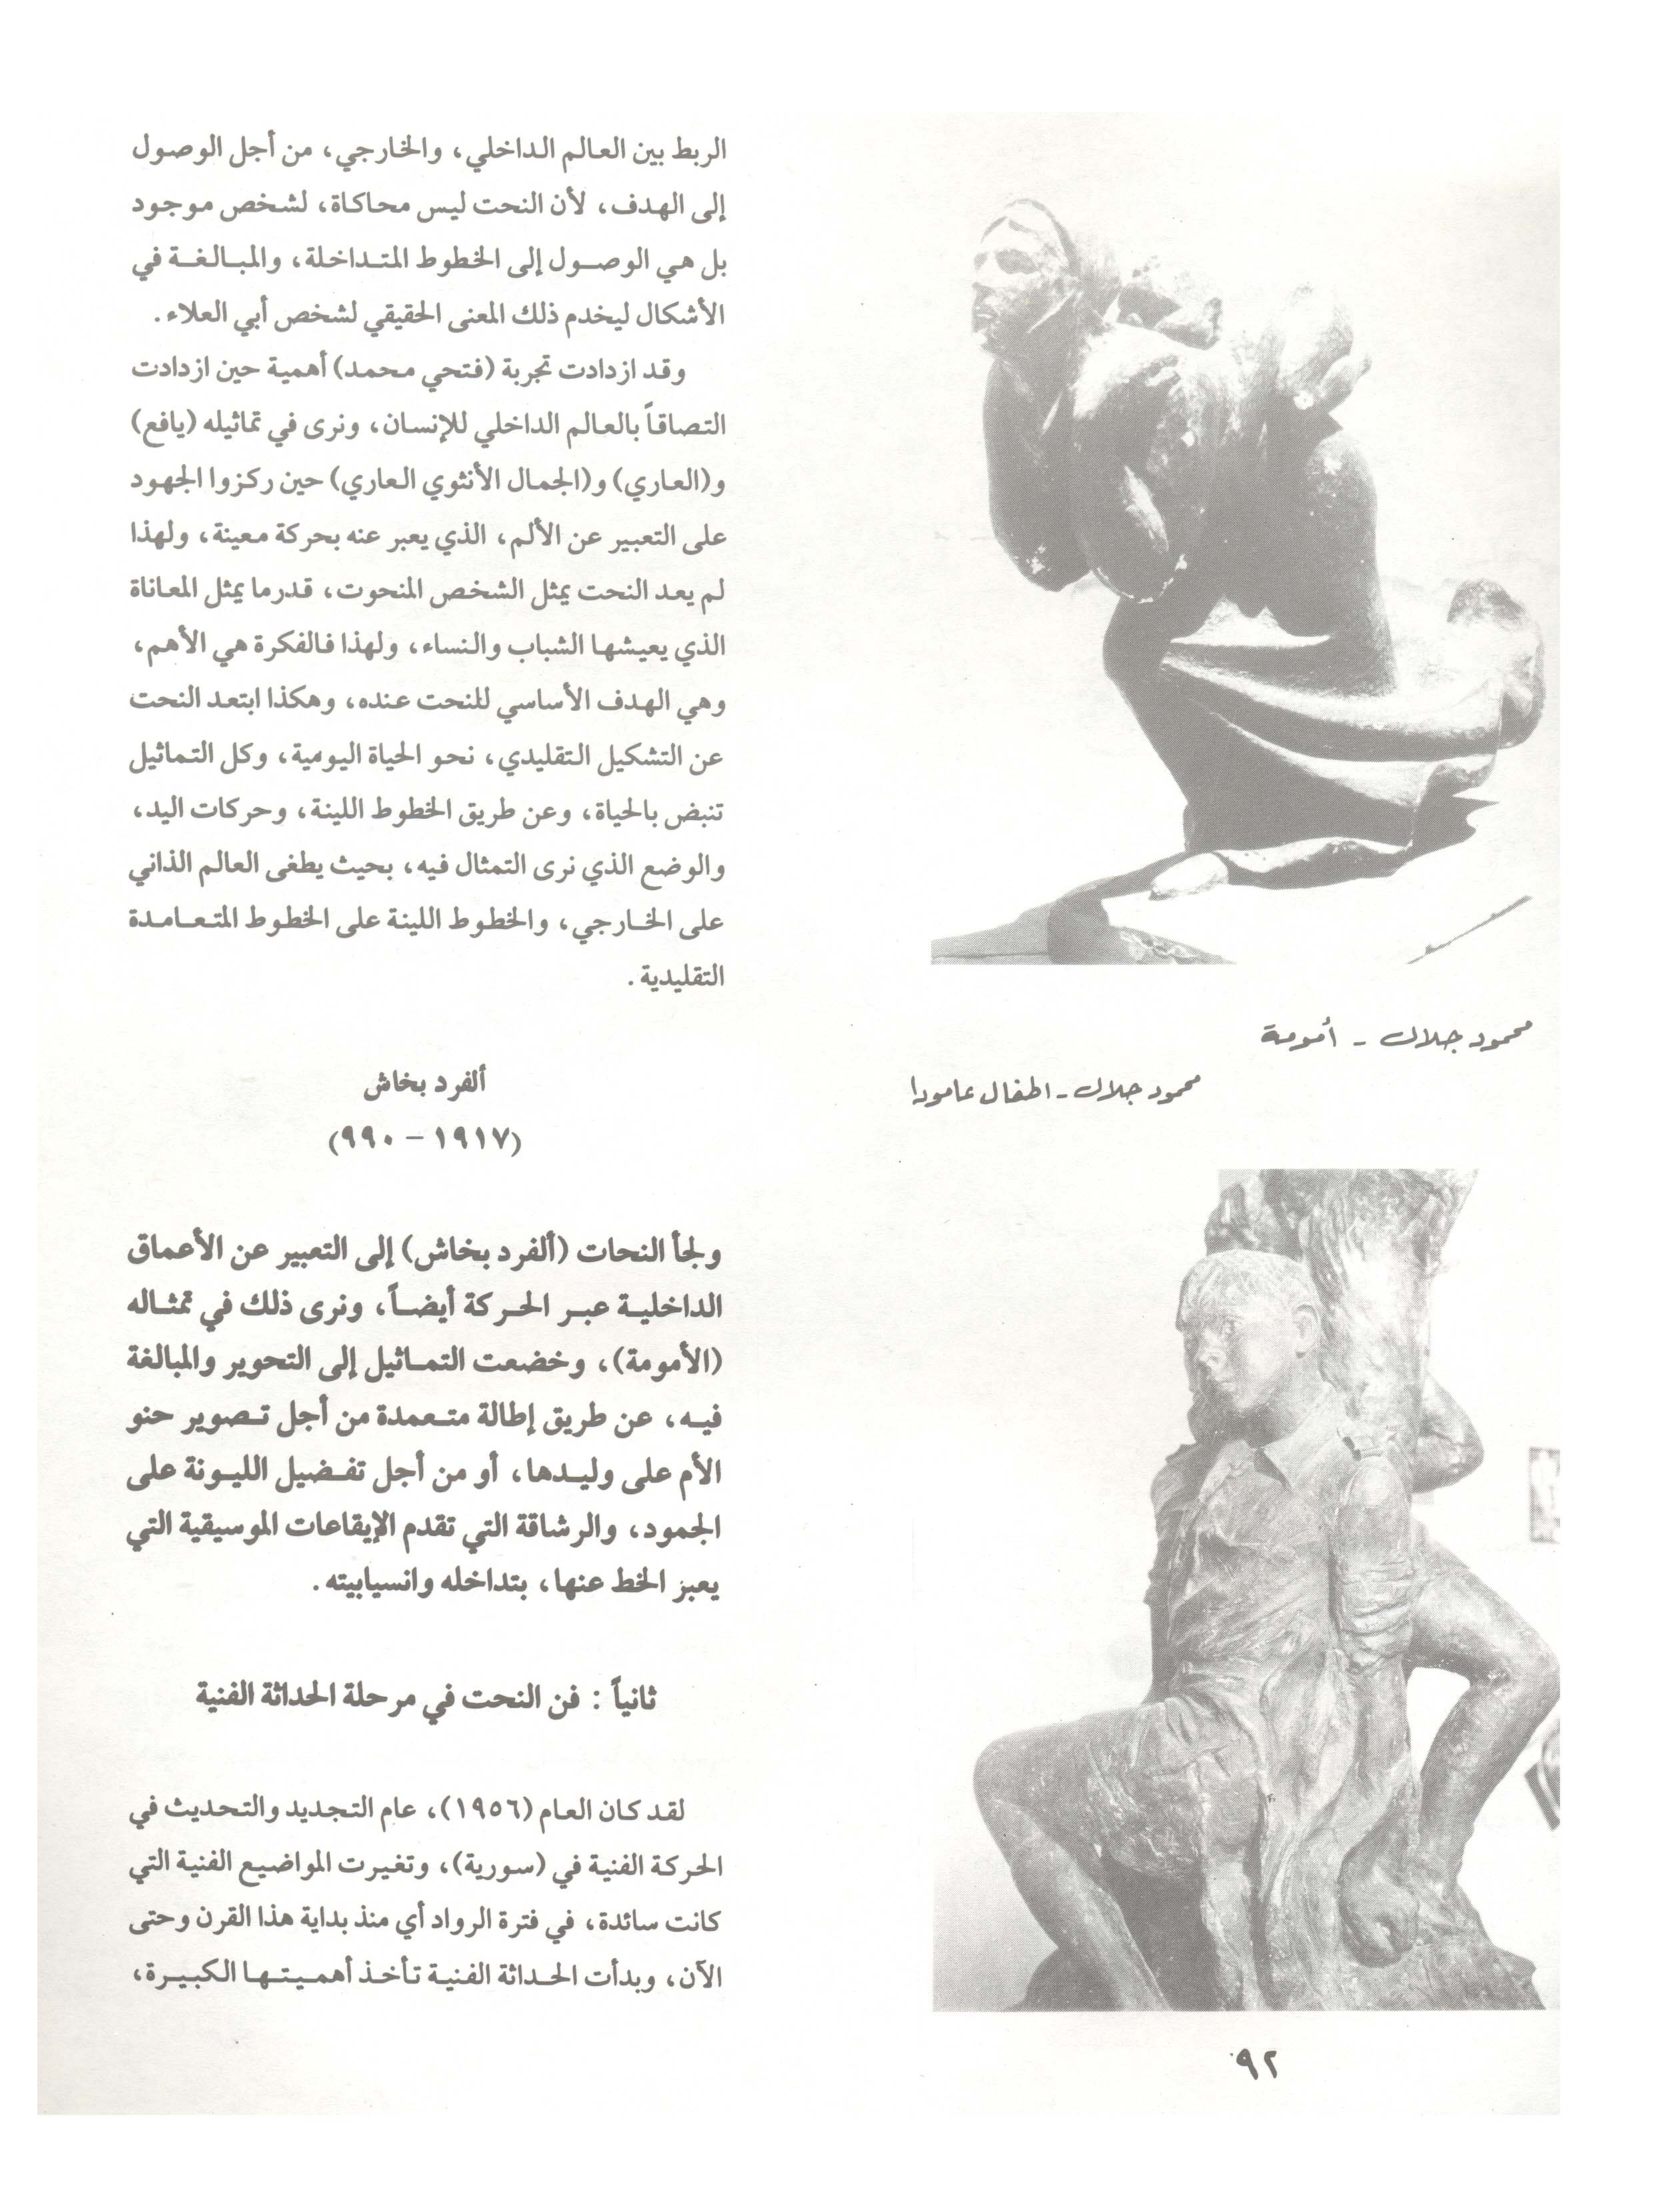 محمود جلال - أمومة
محمود جلال - اطفال عامودا
٩٢
الربط بين العالم الداخلي، والخارجي، من أجل الوصول
إلى الهدف، لأن النحت ليس محاكاة، لشخص موجود
بل هي الوصول إلى الخطوط المتداخلة، والمبالغة في
الأشكال ليخدم ذلك المعنى الحقيقي لشخص أبي العلاء.
وقد ازدادت تجربة (فتحي محمد) أهمية حين ازدادت
التصاقاً بالعالم الداخلي للإنسان، ونرى في تماثيله (يافع)
و(العاري) و(الجمال الأنثوي العاري) حين ركزوا الجهود
على التعبير عن الألم، الذي يعبر عنه بحركة معينة، ولهذا
لم يعد النحت يمثل الشخص المنحوت، قدرما يمثل المعاناة
الذي يعيشها الشباب والنساء، ولهذا فالفكرة هي الأهم،
وهي الهدف الأساسي للنحت عنده، وهكذا ابتعد النحت
عن التشكيل التقليدي، نحو الحياة اليومية، وكل التماثيل
تنبض بالحياة، وعن طريق الخطوط اللينة، وحركات اليد،
والوضع الذي نرى التمثال فيه، بحيث يطغى العالم الذاني
على الخارجي، والخطوط اللينة على الخطوط المتعامدة
التقليدية.
ألفرد بخاش
(١٩١٧ - ٩٩٠)
ولجأ النحات (ألفرد بخاش) إلى التعبير عن الأعماق
الداخلية عبر الحركة أيضاً، ونرى ذلك في تمثاله
(الأمومة)، وخضعت التماثيل إلى التحوير والمبالغة
فيه، عن طريق إطالة متعمدة من أجل تصوير حنو
الأم على وليدها، أو من أجل تفضيل الليونة على
الجمود، والرشاقة التي تقدم الإيقاعات الموسيقية التي
يعبز الخط عنها، بتداخله وانسيابيته.
ثانياً : فن النحت في مرحلة الحداثة الفنية
لقد كان العام (١٩٥٦)، عام التجديد والتحديث في
الحركة الفنية في (سورية)، وتغيرت المواضيع الفنية التي
كانت سائدة، في فترة الرواد أي منذ بداية هذا القرن وحتى
الآن، وبدأت الحداثة الفنية تأخذ أهميتها الكبيرة،